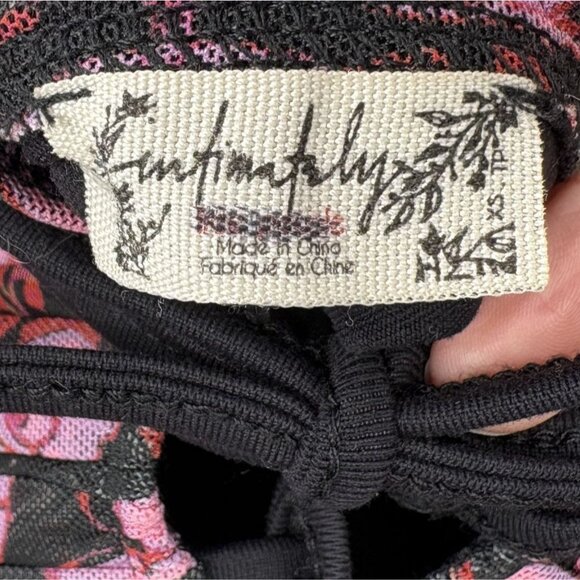 intimately
Made in China
Fabriqué en Chine
XS - TP